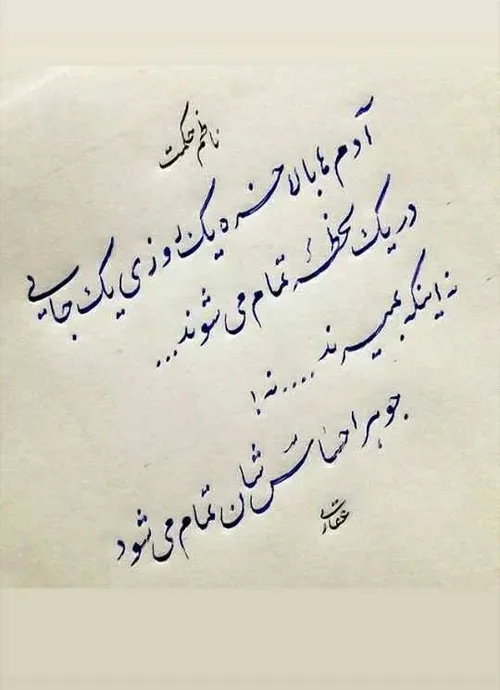 ناظم حکمت
آدم ها بالاخره یک روزی یک جایی
در یک لحظهٔ تمام می شوند...
نه اینکه بمیرند.... نه!
جوهر احساس شان تمام می شود